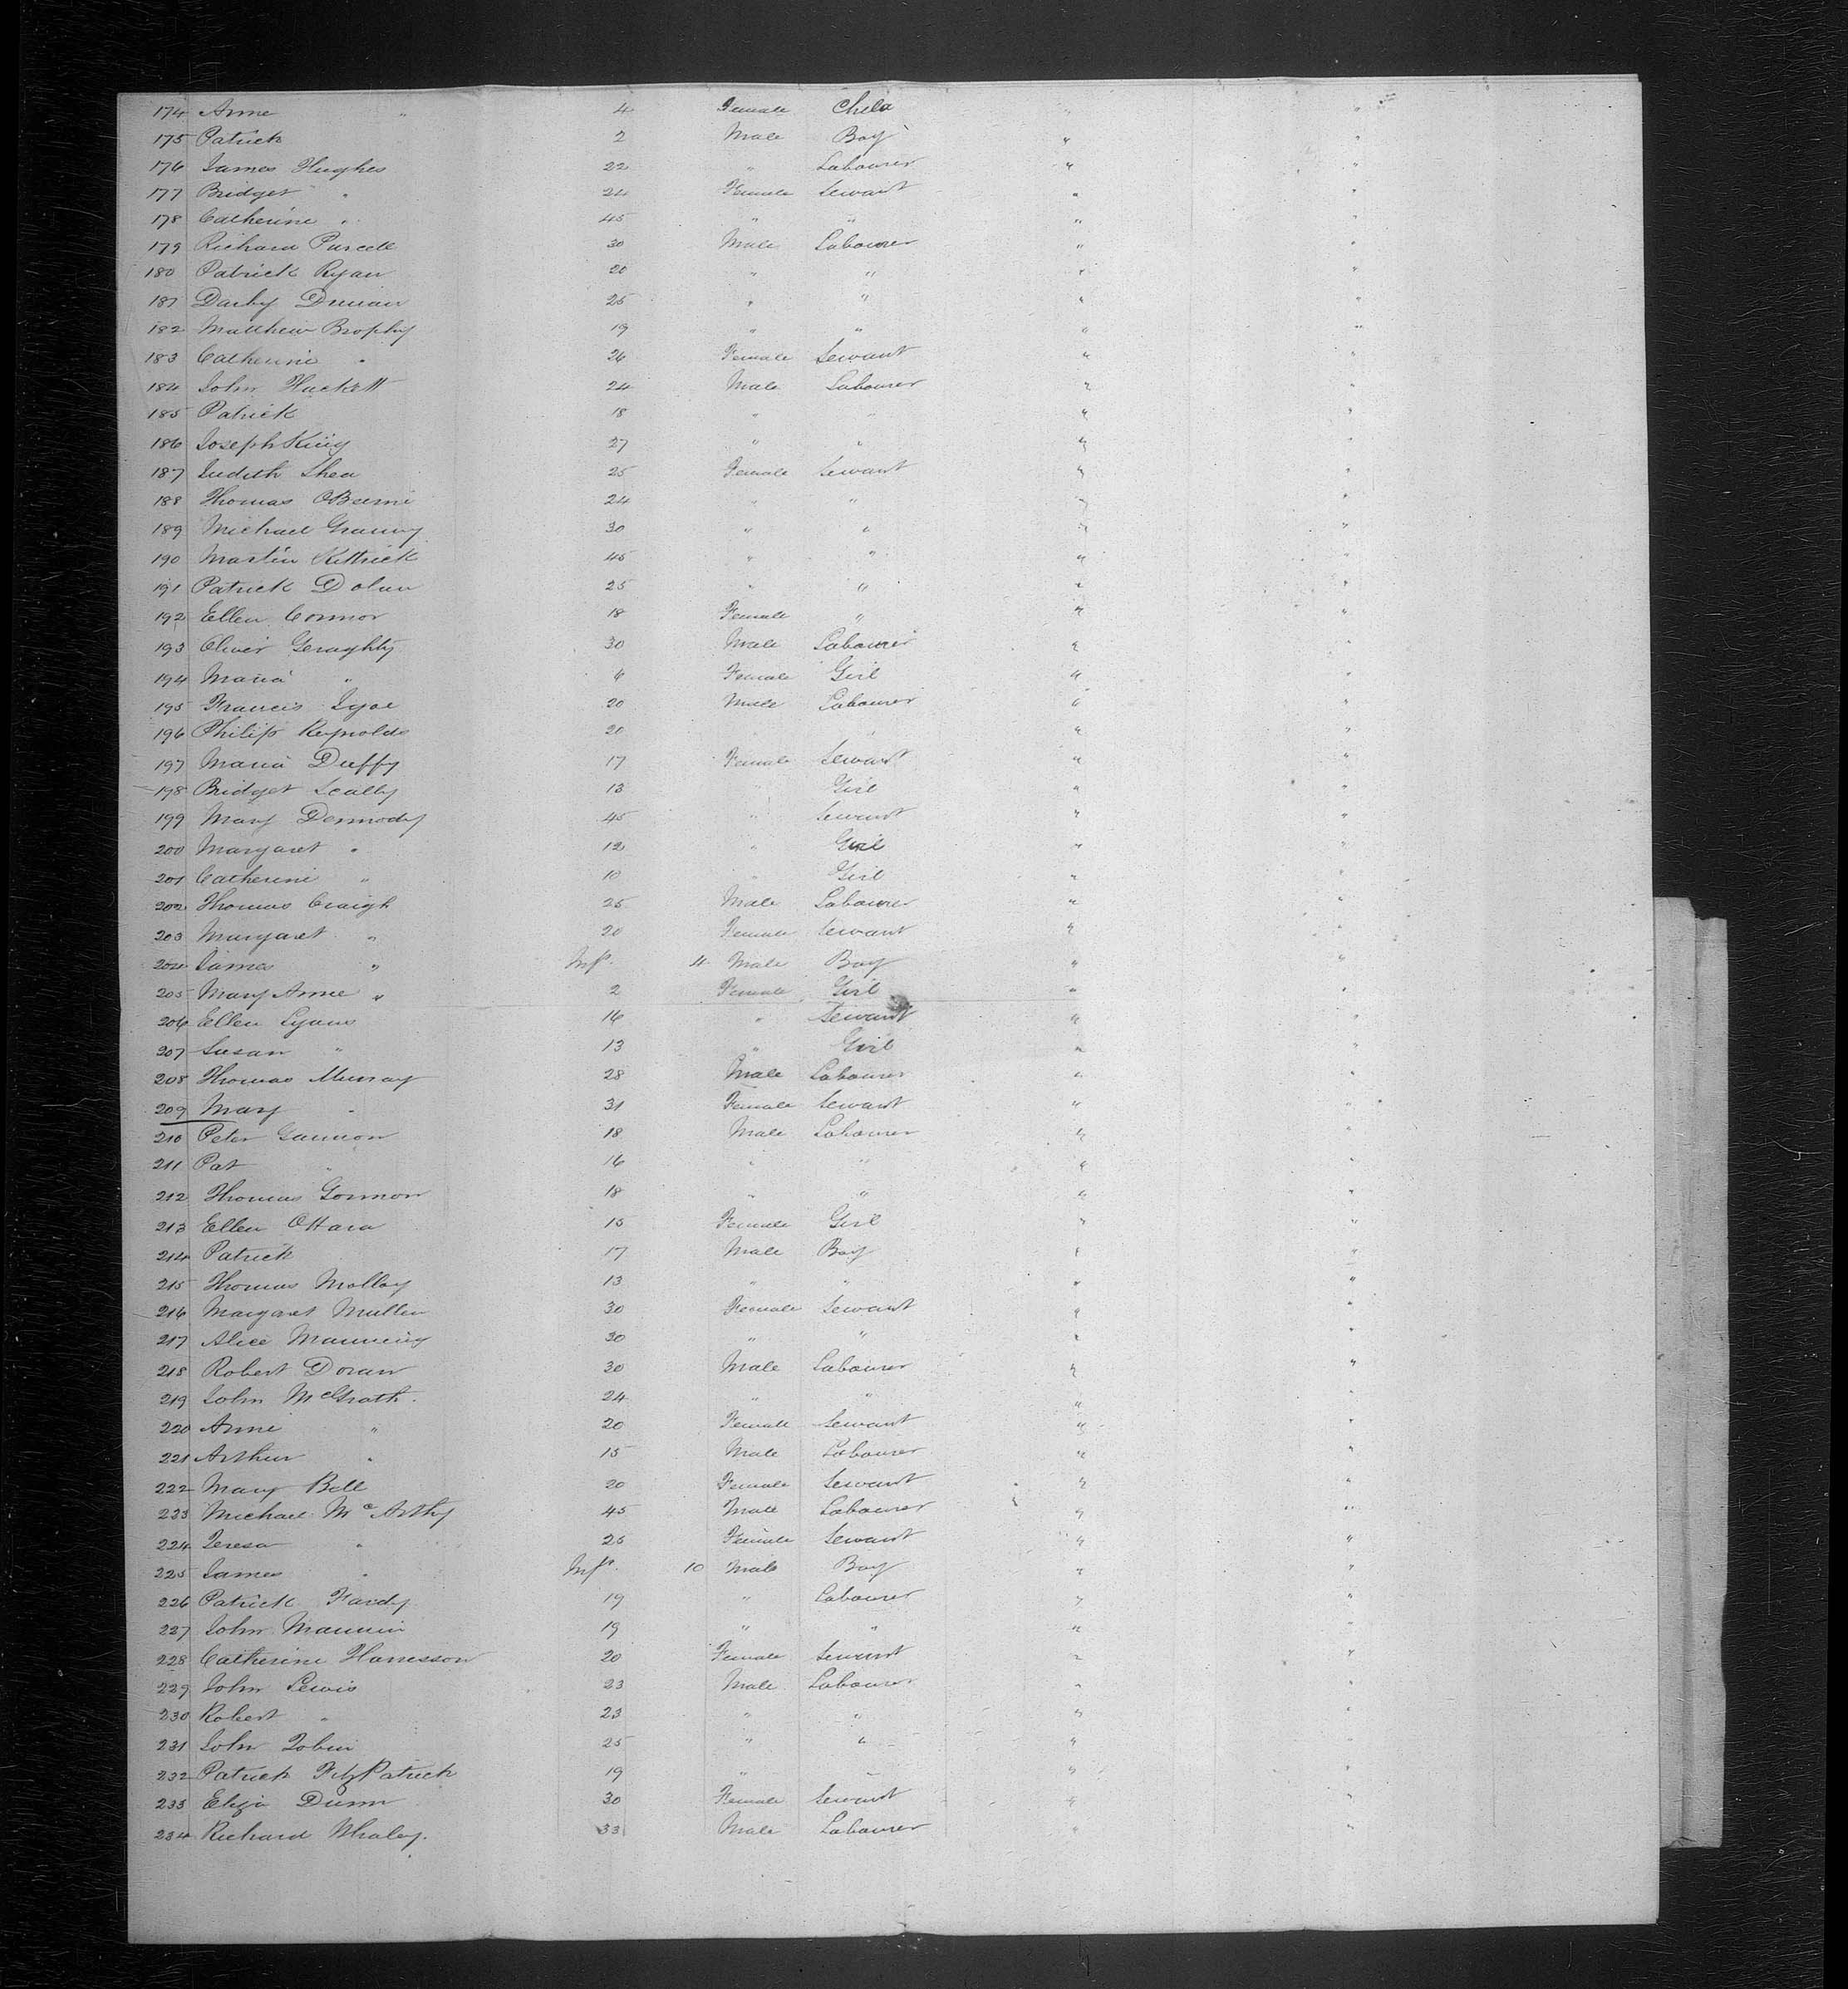 174 Anne " 4 Female Child " "
175 Patrick 2 Male Boy " "
176 James Hughes 22 " Labourer " "
177 Bridget " 24 Female Servant " "
178 Catherine " 45 " " " "
179 Richard Purcell 30 Male Labourer " "
180 Patrick Ryan 20 " " " "
181 Darby 25 " " " "
182 Matthew Brophy 19 " " " "
183 Catherine " 26 Female Servant " "
184 John Hackett 24 Male Labourer " "
185 Patrick 18 " " " "
186 Joseph King 27 " " " "
187 Judith Shea 25 Female Servant " "
188 Thomas OBeirne 24 " " " "
189 Michael 30 " " " "
190 Martin Kittrick 45 " " " "
191 Patrick Dolan 25 " " " "
192 Ellen Connor 18 Female " " "
193 Oliver Geraghty 30 Male Labourer " "
194 Maria " 6 Female Girl " "
195 Francis 20 Male Labourer " "
196 Philip Reynolds 20 " " "
197 Maria Duffy 17 Female Servant " "
198 Bridget Scally 13 " Girl " "
199 Mary Dermody 45 " Servant " "
200 Margaret " 12 " Girl " "
201 Catherine " 10 " Girl " "
202 Thomas Craigh 25 Male Labourer " "
203 Margaret " 20 Female Servant " "
204 James " Inft. 4 Male Boy " "
205 Mary Anne " 2 Female Girl " "
206 Ellen Lyons 16 " Servant " "
207 Susan " 13 " Girl " "
208 Thomas Murray 28 Male Labourer " "
209 Mary " 31 Female Servant " "
210 Peter Gannon 18 Male Labourer " "
211 Pat " 16 " " " "
212 Thomas Gormon 18 " " " "
213 Ellen OHara 15 Female Girl " "
214 Patrick 17 Male Boy " "
215 Thomas Molloy 13 " " " "
216 Margaret Mullen 30 Female Servant " "
217 Alice Manning 30 " " " "
218 Robert Doran 30 Male Labourer " "
219 John McGrath. 24 " " " "
220 Anne " 20 Female Servant " "
221 Arthur " 15 Male Labourer " "
222 Mary Bell 20 Female Servant " "
233 Michael McArthy 45 Male Labourer " "
224 Teresa " 25 Female Servant " "
225 James " Inft. 10 Male Boy " "
226 Patrick 19 " Labourer " "
227 John Mannin 19 " " " "
228 Catherine Harresson 20 Female Servant " "
229 John Lewis 23 Male Labourer " "
230 Robert " 23 " " " "
231 John Tobin 25 " " " "
232 Patrick FitzPatrick 19 " " " "
233 Eliza Dunn 30 Female Servant " "
234 Richard Whaley. 33 Male Labourer " "